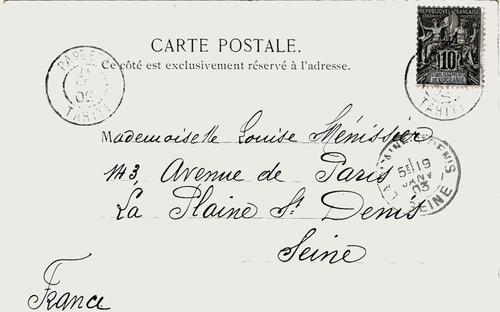 CARTE POSTALE.
Ce côté est exclusivement réservé à l'adresse.
RÉPUBLIQUE FRANÇAISE
COLONIES POSTES
10
PAPEETE
02
TAHITI
TAHITI
Mademoiselle Louise Ménissier
143, Avenue de Paris
La Plaine St Denis
Seine
France
LA PLAINE ST DENIS
5E/19
JANV
03
SEINE